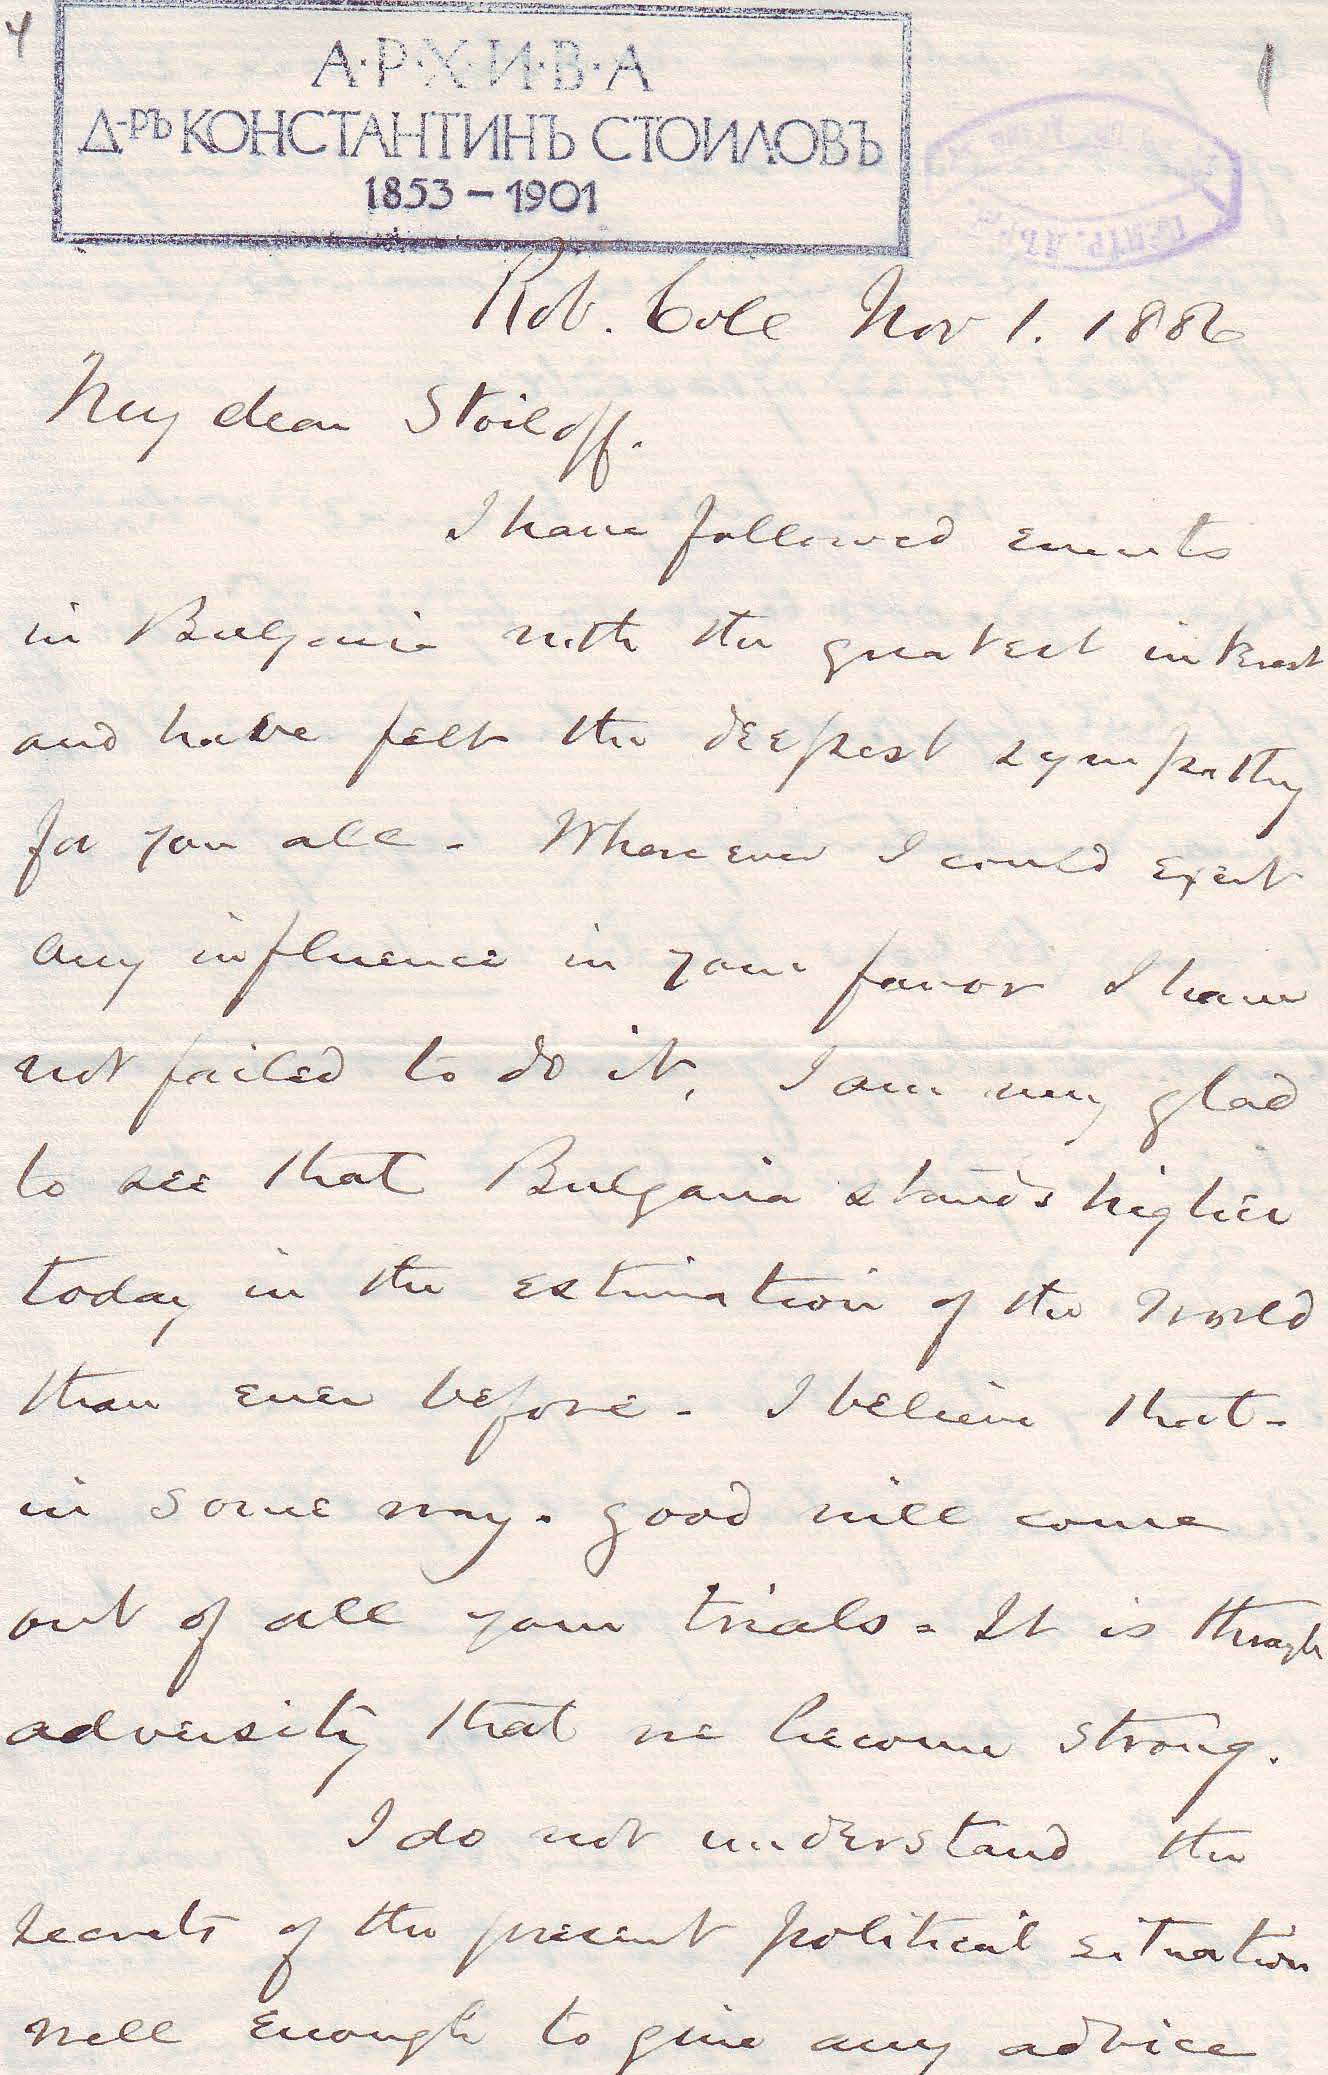 4
1
А·Р·Х·И·В·А
Д-РЪ КОНСТАНТИНЪ СТОИЛОВЪ
1853 – 1901
Rob. Coll Nov 1. 1886
My dear Stoiloff.
I have followed events
in Bulgaria with the greatest interest
and have felt the deepest sympathy
for you all - Wherever I could exert
any influence in your favor I have
not failed to do it. I am very glad
to see that Bulgaria stands higher
today in the estimation of the world
than ever before - I believe that -
in some way - good will come
out of all your trials - It is through
adversity that we become strong.
I do not understand the
secrets of the present political situation
well enough to give any advice